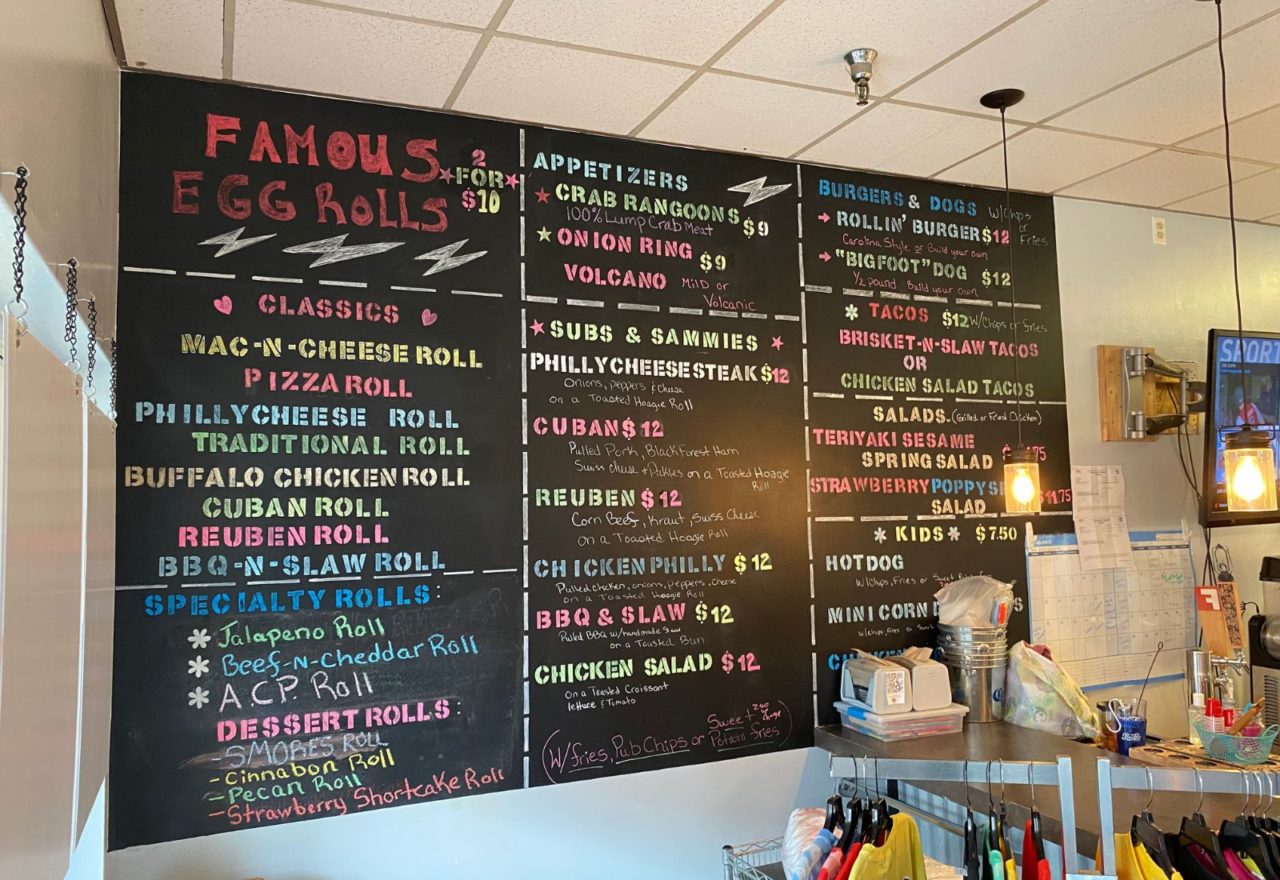 FAMOUS
EGG ROLLS
2
FOR
$10
CLASSICS
MAC-N-CHEESE ROLL
PIZZA ROLL
PHILLYCHEESE ROLL
TRADITIONAL ROLL
BUFFALO CHICKEN ROLL
CUBAN ROLL
REUBEN ROLL
BBQ-N-SLAW ROLL
SPECIALTY ROLLS:
Jalapeno Roll
Beef-N-Cheddar Roll
A.C.P. Roll
DESSERT ROLLS:
- SMORES ROLL
- Cinnabon Roll
- Pecan Roll
- Strawberry Shortcake Roll
APPETIZERS
CRAB RANGOONS $9
100% Lump Crab Meat
ONION RING $9
VOLCANO MILD or
Volcanic
SUBS & SAMMIES
PHILLYCHEESESTEAK $12
Onions, peppers & cheese
on a Toasted Hoagie Roll
CUBAN $12
Pulled Pork, Black Forest Ham
Swiss cheese + Pickles on a Toasted Hoagie
Roll
REUBEN $12
Corn Beef, Kraut, Swiss Cheese
on a Toasted Hoagie Roll
CHICKEN PHILLY $12
Pulled chicken, onions, peppers, cheese
on a Toasted Hoagie Roll
BBQ & SLAW $12
Pulled BBQ w/handmade Slaw
on a Toasted Bun
CHICKEN SALAD $12
on a Toasted Croissant
lettuce & Tomato
(W/fries, Pub Chips or Sweet
Potato fries)
BURGERS & DOGS W/Chips
or
Fries
ROLLIN' BURGER $12
Carolina Style or Build your own
"BIGFOOT" DOG $12
1/2 pound Build your own
TACOS $12 W/Chips or fries
BRISKET-N-SLAW TACOS
OR
CHICKEN SALAD TACOS
SALADS. (Grilled or Fried Chicken)
TERIYAKI SESAME
SPRING SALAD
STRAWBERRY POPPYS $11.75
SALAD
KIDS $7.50
HOTDOG
W/Chips, Fries or Sweet
MINI CORN D
W/chips, Fries or
SPORT